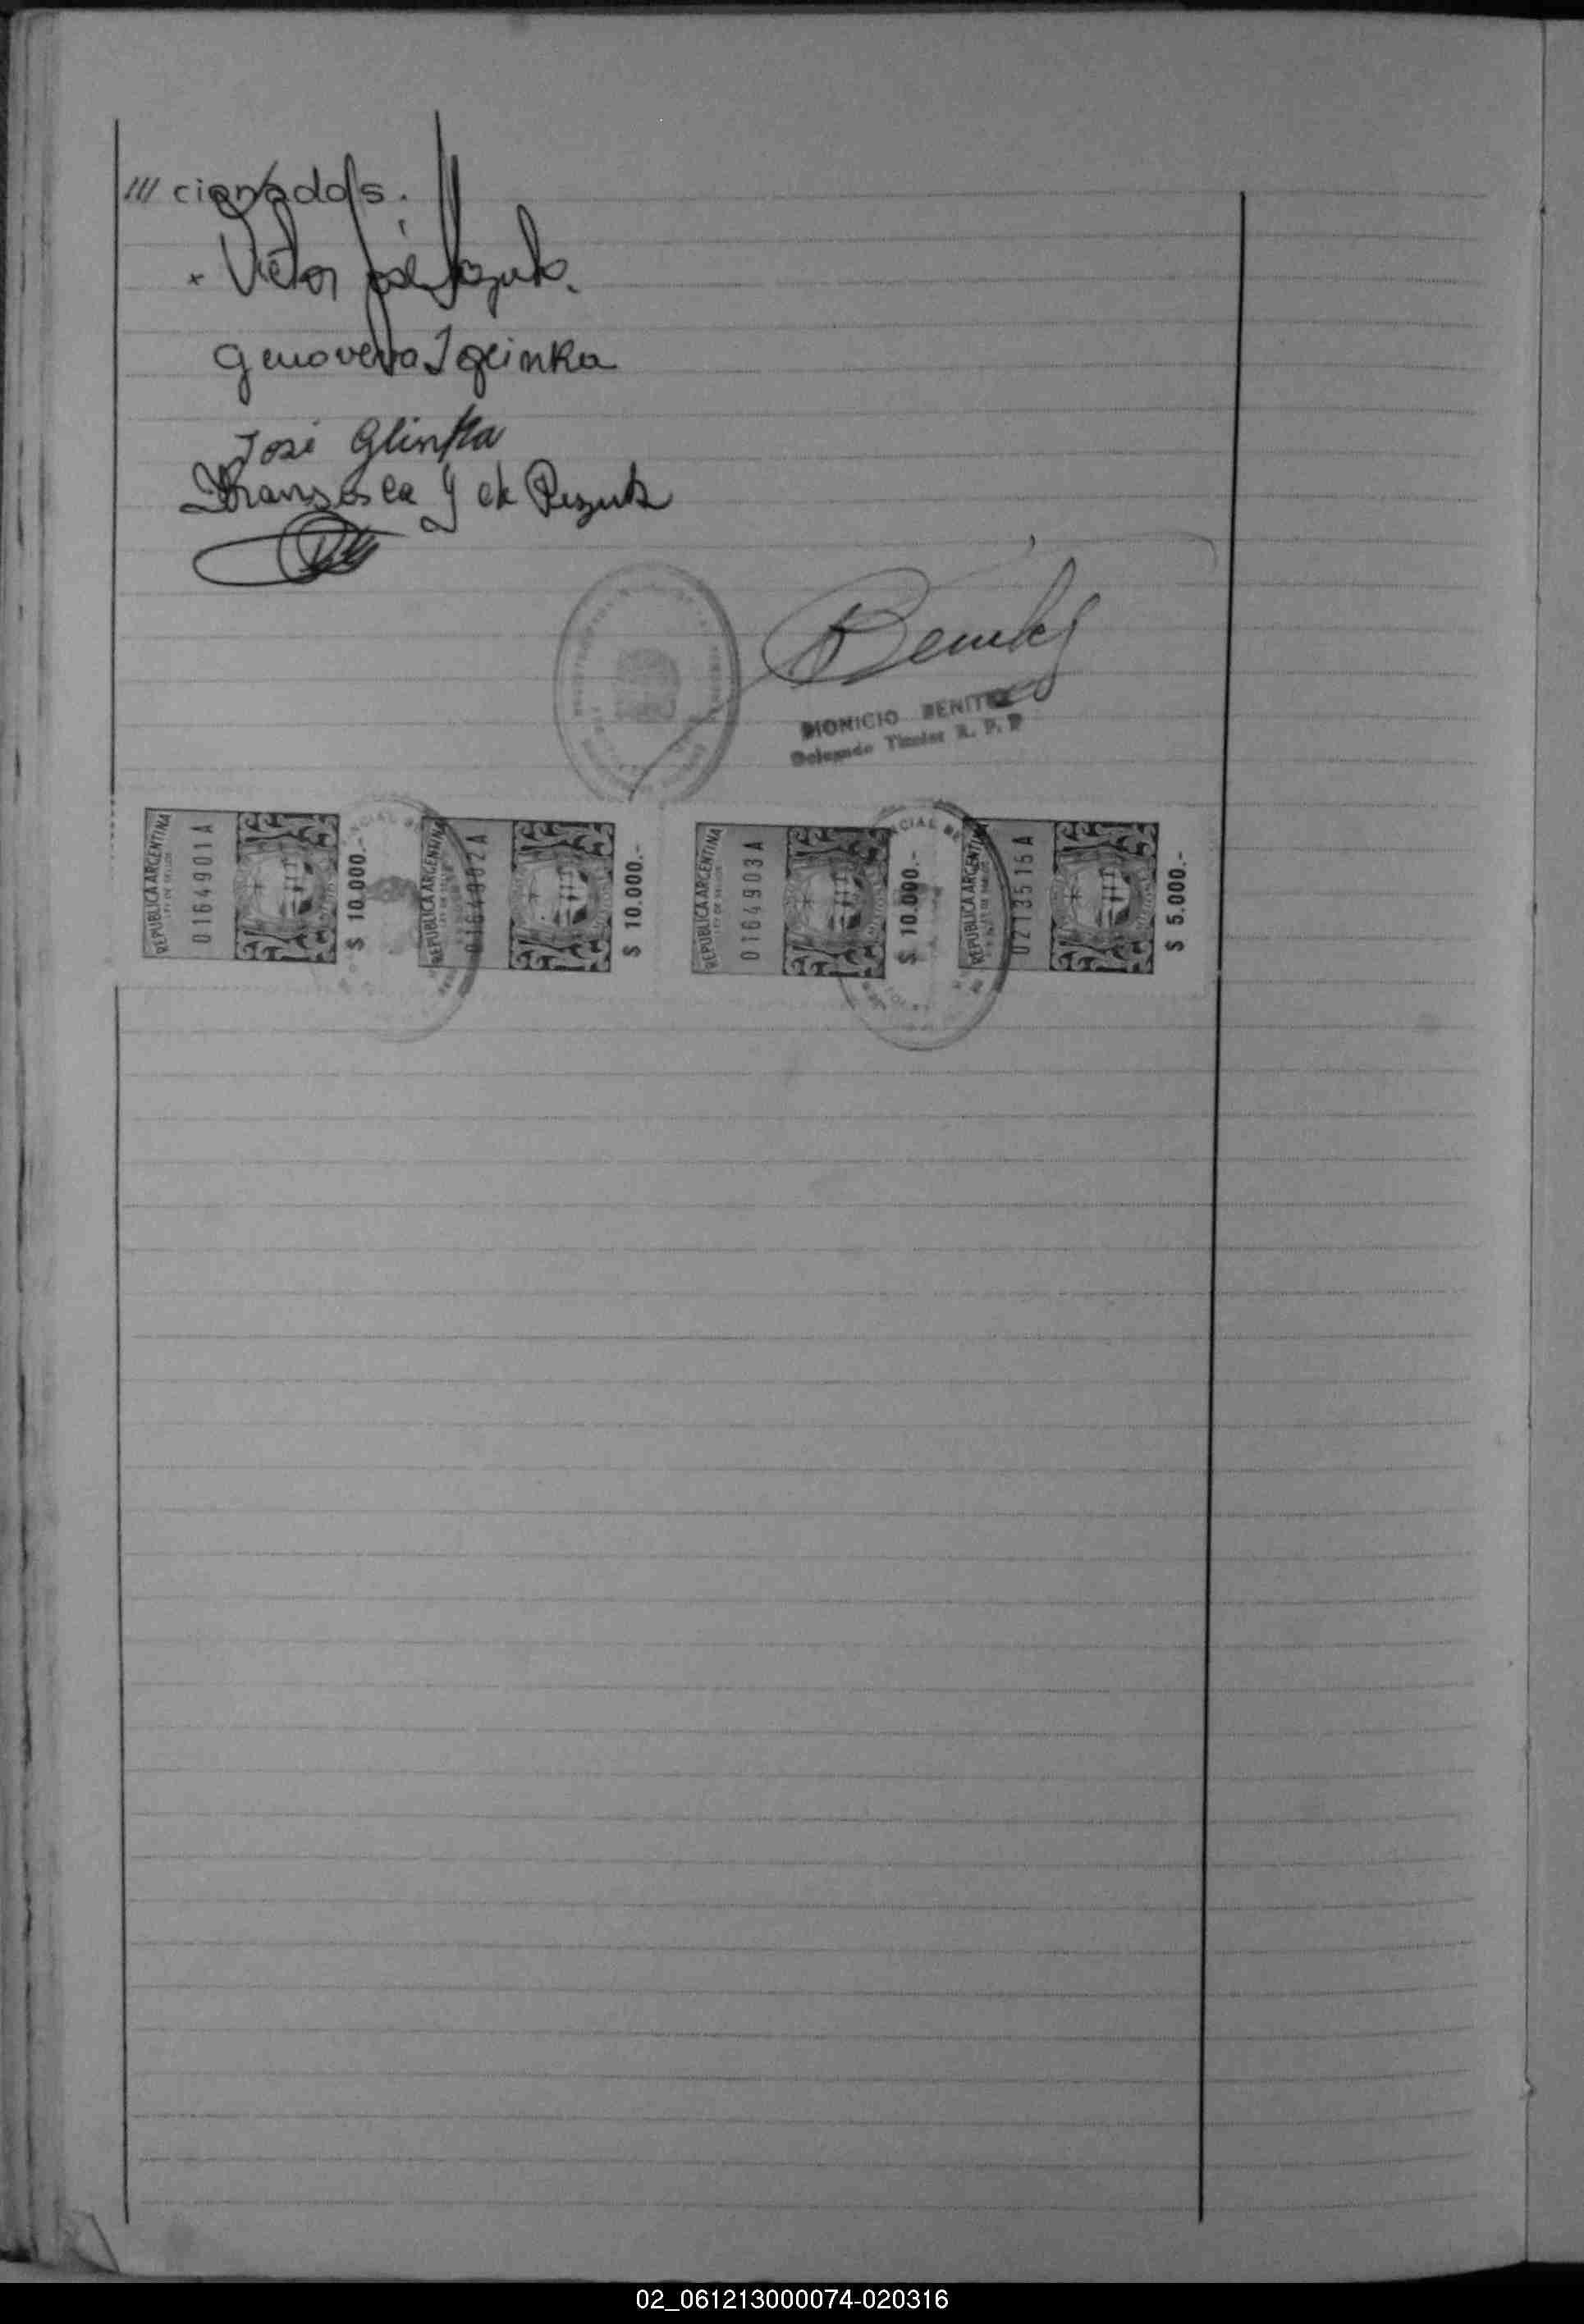 /// cionados.
x Victor José Pezuk.
Genoveva I Glinka
José Glinka
Fransisca G de Pezuk
Benitez
DIONICIO BENITEZ
Delegado Titular R. P. P
REPUBLICA ARGENTINA
0164901A
$ 10.000.-
REPUBLICA ARGENTINA
0164902A
$ 10.000.-
REPUBLICA ARGENTINA
0164903A
$ 10.000.-
REPUBLICA ARGENTINA
0213515A
$ 5.000.-
02_061213000074-020316